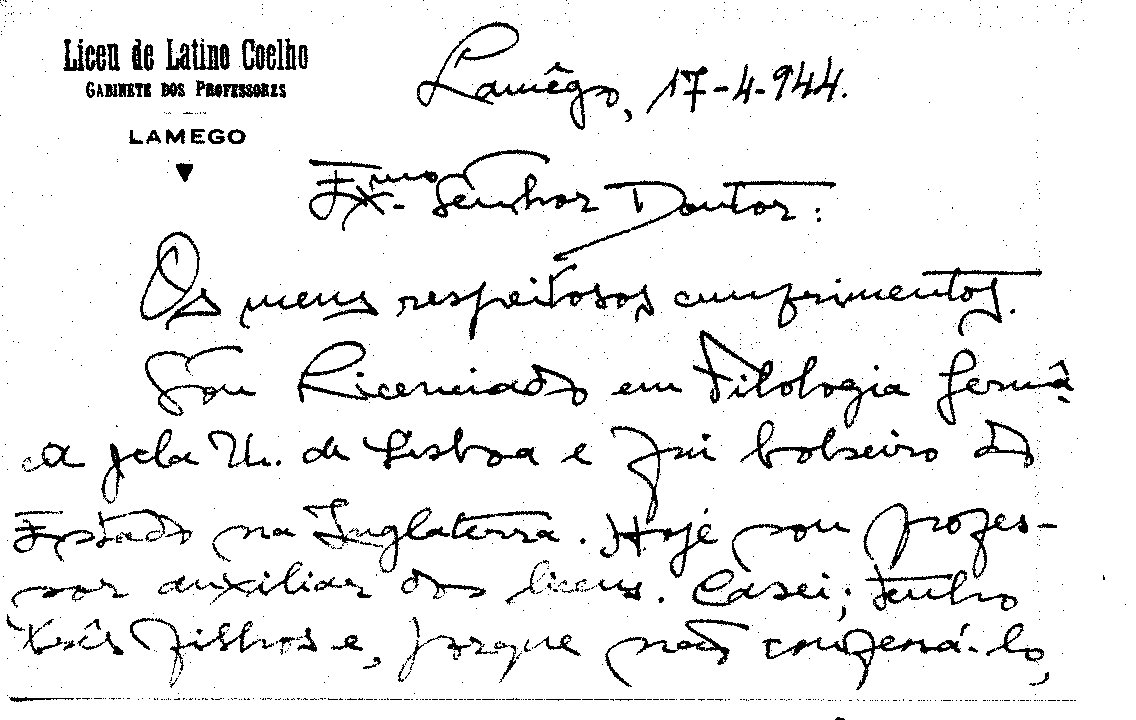 Liceu de Latino Coelho
GABINETE DOS PROFESSORES
LAMEGO
Lamêgo, 17-4-944.
Exmo. Senhor Doutor:
Os meus respeitosos cumprimentos.
Sou Licenciado em Filologia Germâ
ca pela U. de Lisboa e fui bolseiro do
Estado na Inglaterra. Hoje sou profes-
sor auxiliar dos liceus. Casei; tenho
três filhos e, porque não confessá-lo,